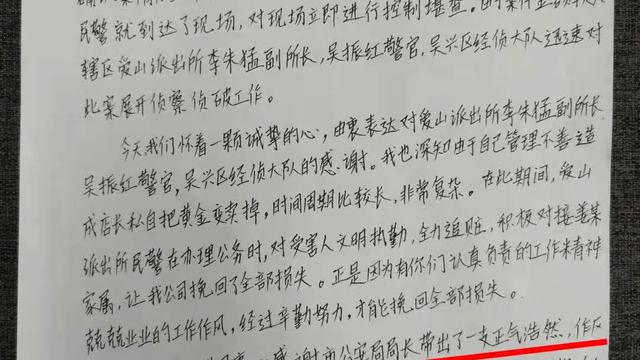 民警就到达了现场，对现场立即进行控制堪查。由于案件金额
辖区爱山派出所李朱猛副所长，吴振红警官，吴兴区经侦大队迅速对
此案展开侦察侦破工作。
今天我们怀着一颗诚挚的心，由衷表达对爱山派出所李朱猛副所长
吴振红警官，吴兴区经侦大队的感谢。我也深知由于自己管理不善造
成店长私自把黄金变卖掉，时间周期比较长，非常复杂。在此期间，爱山
派出所民警在办理公务时，对受害人文明执勤，全力追赃，积极对接姜某
家属，让我公司挽回了全部损失。正是因为有你们认真负责的工作精神
兢兢业业的工作作风，经过辛勤努力，才能挽回全部损失。
感谢市公安局局长带出了一支正气浩然，作风